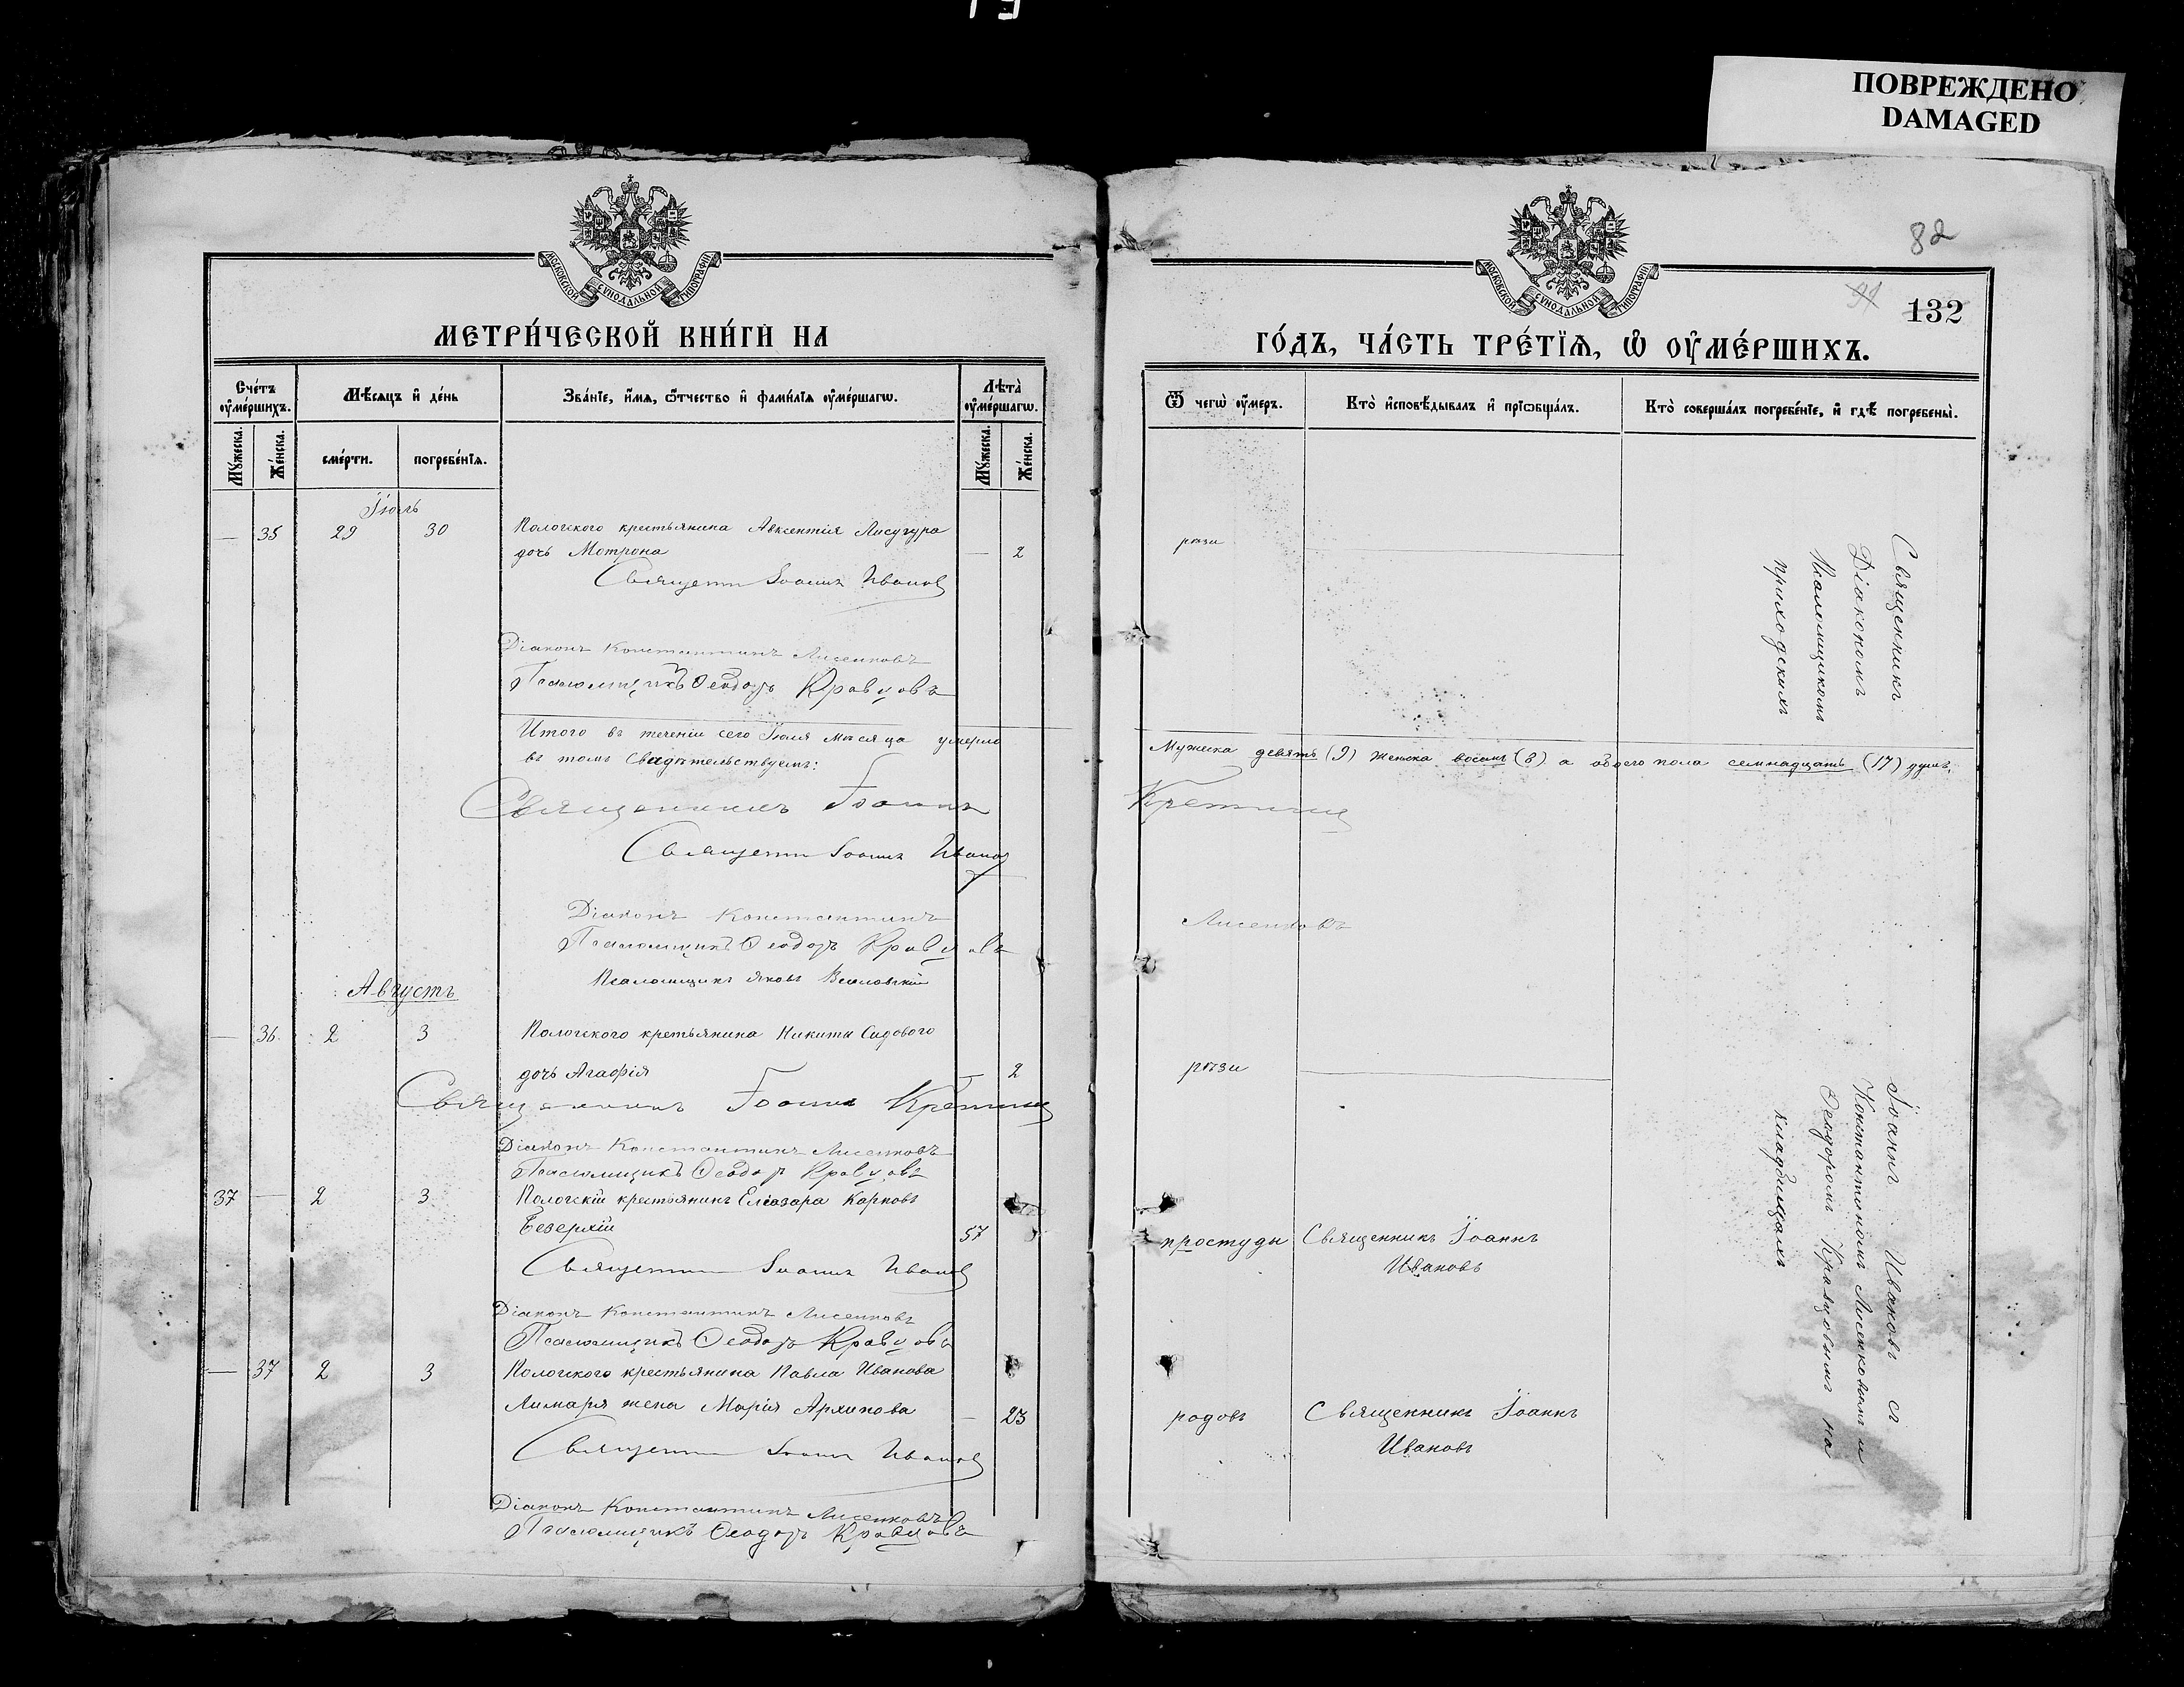 ПОВРЕЖДЕНО
DAMAGED
МОСКОВСКОЙ СУНОДАЛЬНОЙ ТИПОГРАФІИ
МЕТРИ́ЧЕСКОЙ КНИ́ГИ НА
Сче́тъ ᲂу҆ме́ршихъ.
Мѣ́сяцъ и҆ де́нь
Зва́нїе, и҆́мѧ, ѻ҆́тчество и҆ фами́лїѧ ᲂу҆ме́ршагѡ.
Лѣ́та ᲂу҆ме́ршагѡ.
Мꙋ́жеска.
Же́нска.
сме́рти.
погребе́нїѧ.
Мꙋ́жеска.
Же́нска.
Іюль
— 35 29 30 Пологского крестьянина Авксентія Лисугура
дочь Мотрона — 2
Священн Іоаннъ Ивановъ
Діаконъ Константинъ Лисенковъ
Псаломщикъ Ѳеодоръ Кравцовъ
Итого въ теченіи сего Іюля мѣсяца умерло
въ томъ Свидѣтельствуемъ:
Священникъ Іоаннъ
Священн Іоаннъ Ивановъ
Діаконъ Константинъ
Псаломщикъ Ѳеодоръ Кравцовъ
Псаломщикъ Яковъ
Августъ
— 36 2 3 Пологского кретьянина Никиты Садового
дочь Агафія — 2
Священникъ Іоаннъ
Діаконъ Константинъ Лисенковъ
Псаломщикъ Ѳеодоръ Кравцовъ
37 — 2 3 Пологскій крестьянинъ Елеазара Карповъ
57
Священн Іоаннъ Ивановъ
Діаконъ Константинъ Лисенковъ
Псаломщикъ Ѳеодоръ Кравцовъ
— 37 2 3 Пологского крестьянина Павла Иванова
Лимаря жена Марія Архипова — 23
Священн Іоаннъ Ивановъ
Діаконъ Константинъ Лисенковъ
Псаломщикъ Ѳеодоръ Кравцовъ
82
91
132
МОСКОВСКОЙ СУНОДАЛЬНОЙ ТИПОГРАФІИ
ГО́ДЪ, ЧА́СТЬ ТРЕ́ТЇѦ, Ѡ҆ ОУ҆МЕ́РШИХЪ.
Ѿ чегѡ̀ ᲂу҆́меръ.
Кто̀ и҆сповѣ́дывалъ и҆ прїѡбща́лъ.
Кто̀ соверша́лъ погребе́нїе, и҆ гдѣ̀ погребены̀.
рѣзи
Священникъ
Діакономъ
Псаломщикомъ
приходскихъ
Мужска девять (9) Женска восемь (8) а обоего пола семнадцать (17) душъ.
Лисенковъ
рѣзи
Іоаннъ Ивановъ съ
Константиномъ Лисенковымъ и
Ѳеодоромъ Кравцовымъ на
кладбищахъ
простуды Священникъ Іоаннъ
Ивановъ
родовъ Священникъ Іоаннъ
Ивановъ